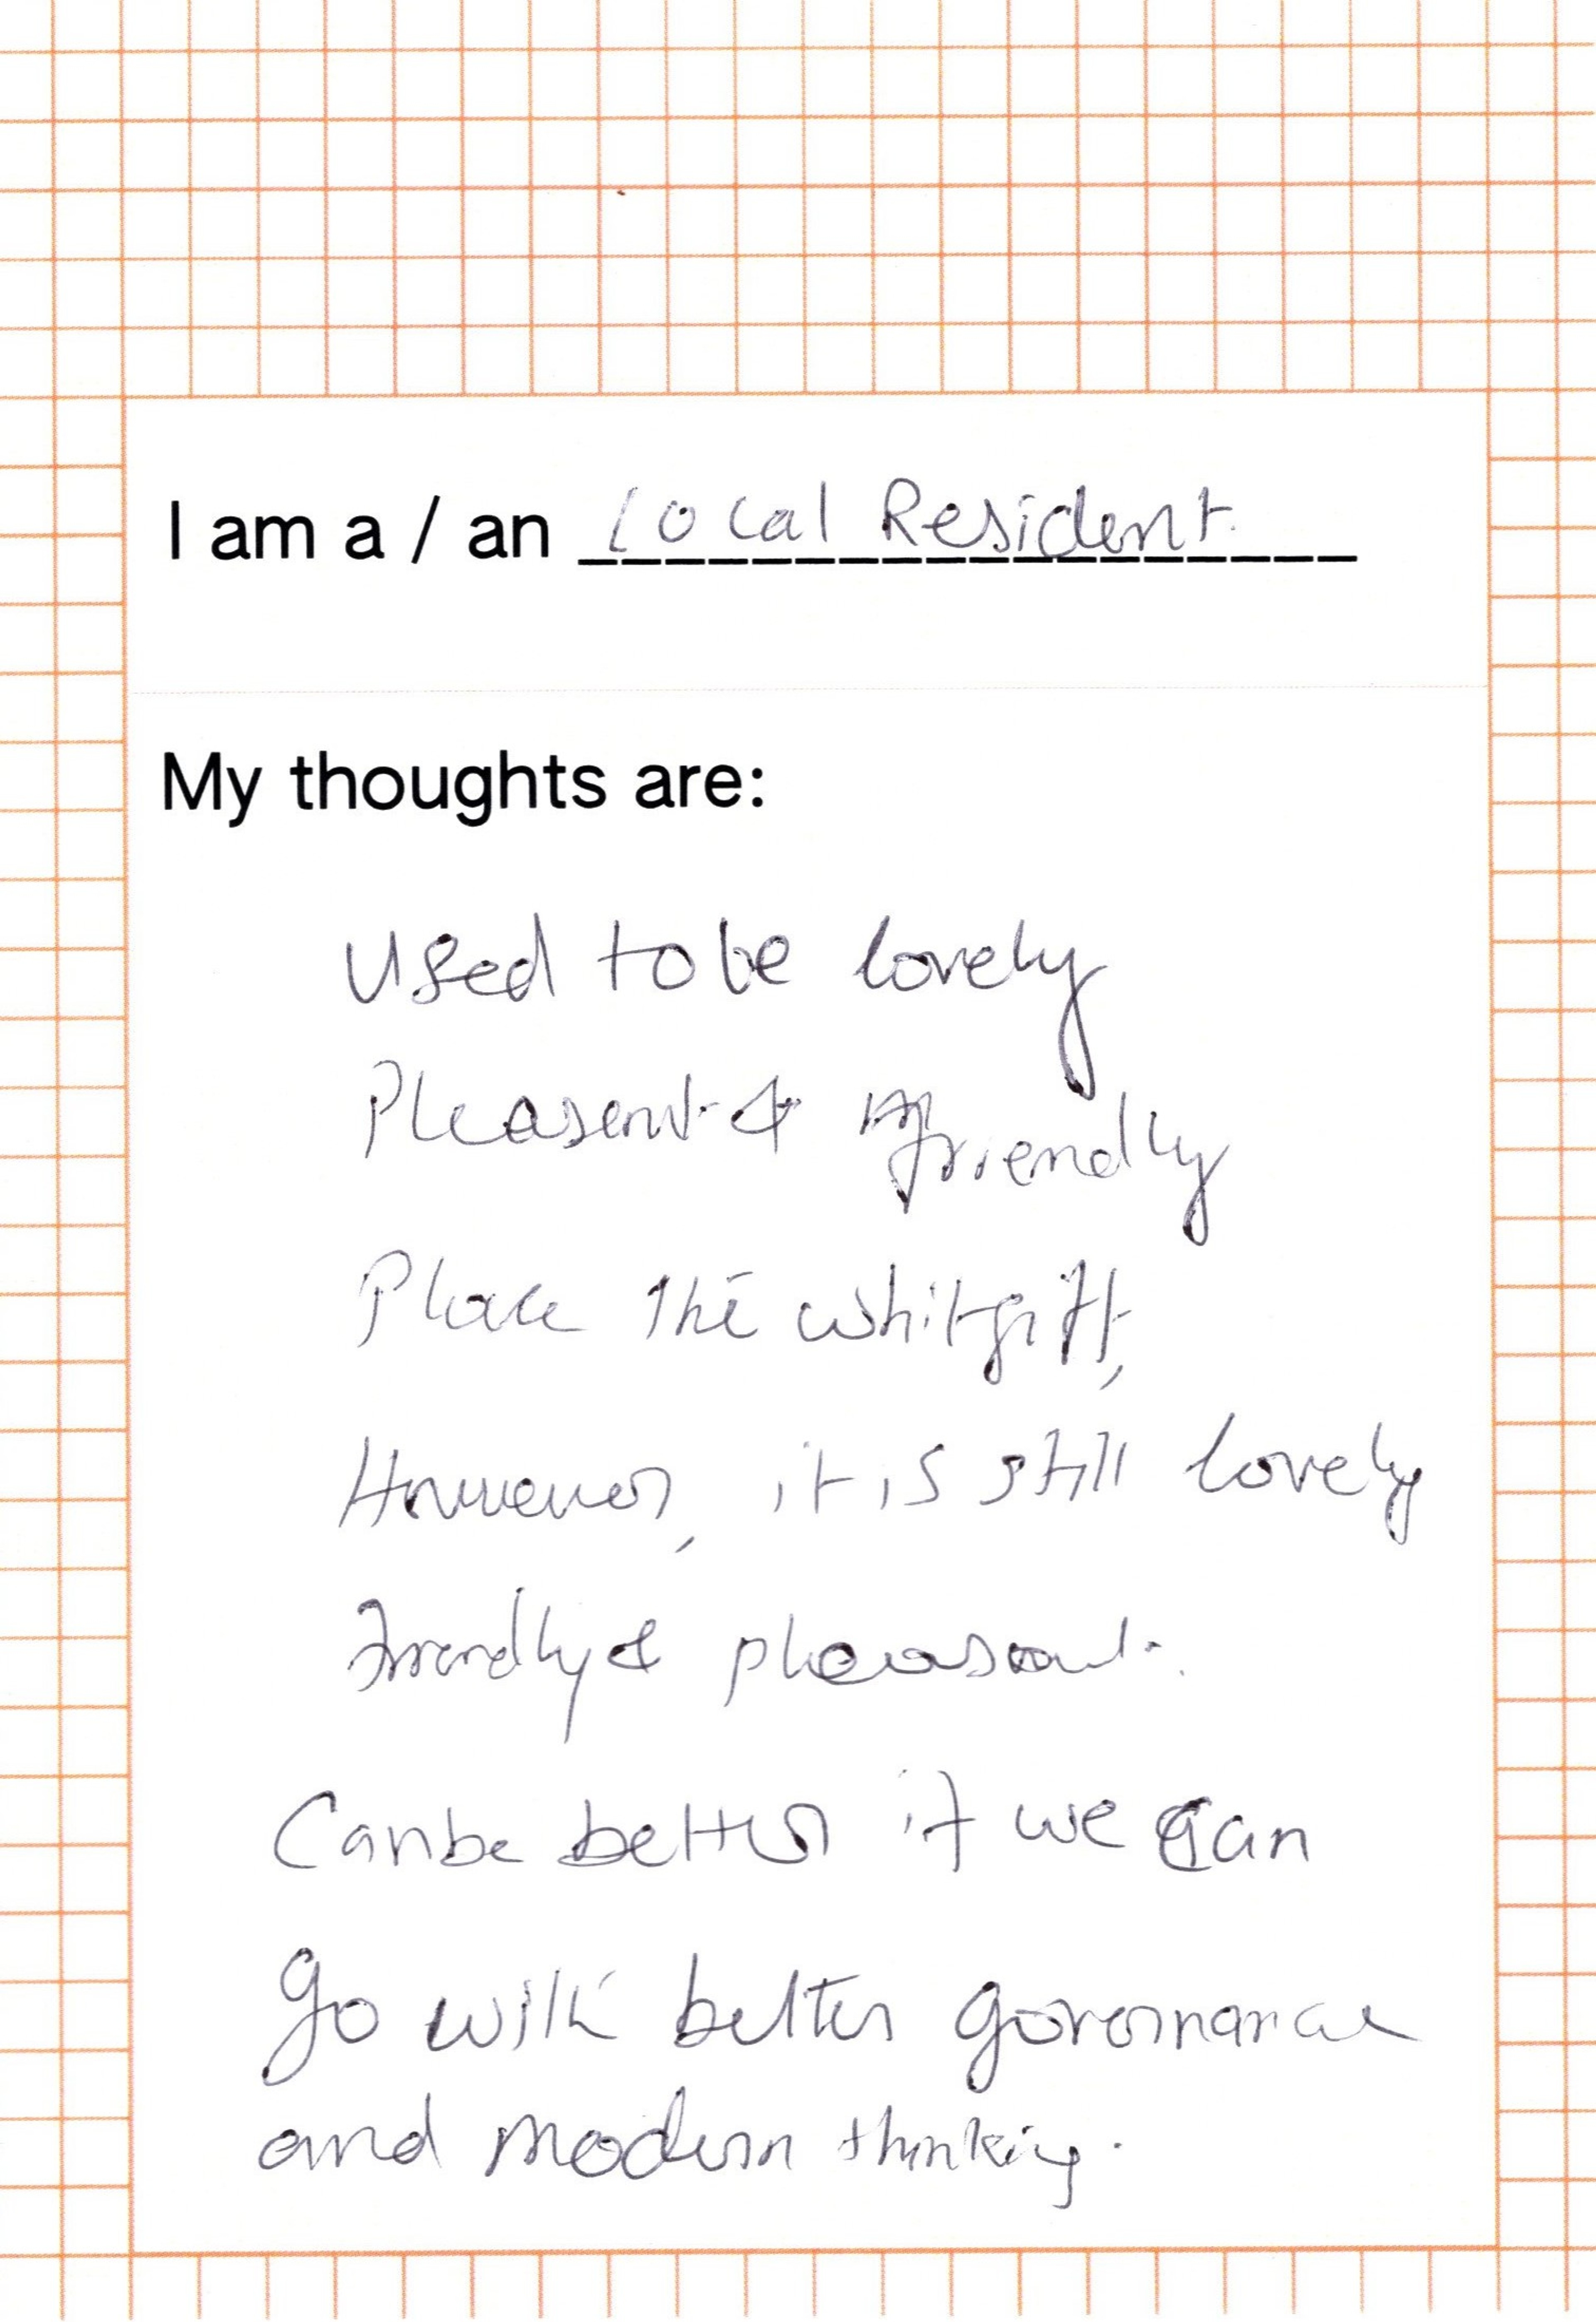 I am a / an Local Resident.
My thoughts are:
Used to be lovely
Pleasent & friendly
Place the whitgift,
However, it is still lovely
friendly & pleasant.
Can be better if we can
go with better governance
and modern thinking.